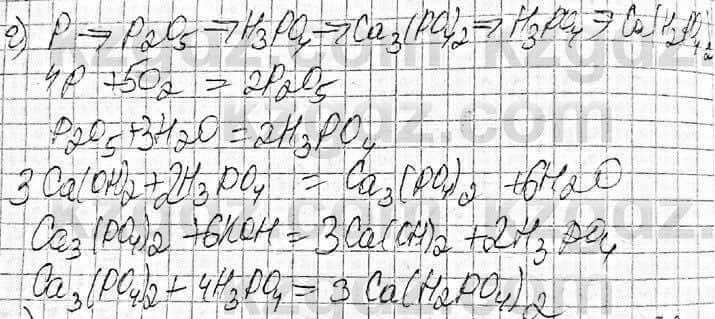 г) P → P₂O₅ → H₃PO₄ → Ca₃(PO₄)₂ → H₃PO₄ → Ca(H₂PO₄)₂
4P + 5O₂ = 2P₂O₅
P₂O₅ + 3H₂O = 2H₃PO₄
3Ca(OH)₂ + 2H₃PO₄ = Ca₃(PO₄)₂ + 6H₂O
Ca₃(PO₄)₂ + 6KOH = 3Ca(OH)₂ + 2H₃PO₄
Ca₃(PO₄)₂ + 4H₃PO₄ = 3Ca(H₂PO₄)₂